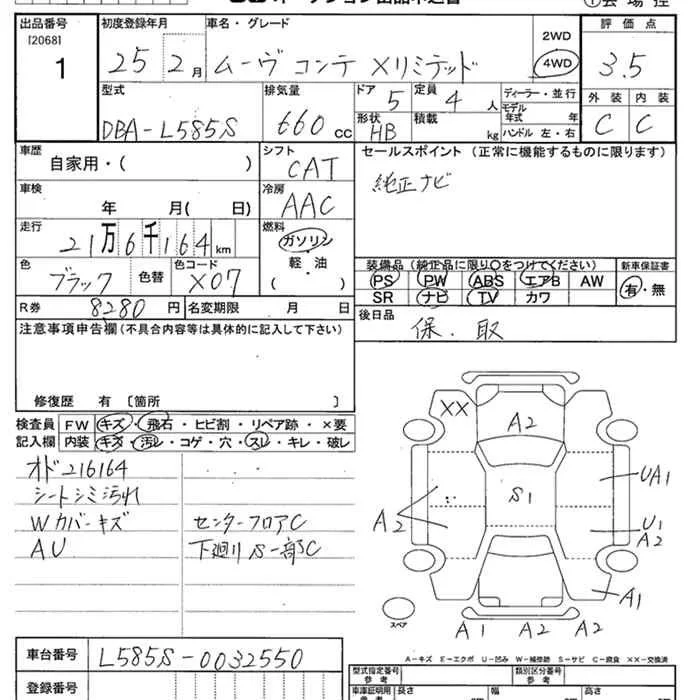 出品番号 初度登録年月 車名・グレード 評価点
[2068] 1 25 2月 ムーヴ コンテ Xリミテッド 2WD 4WD 3.5
型式 排気量 ドア 5 定員 4人 ディーラー・並行 外装 内装
DBA-L585S 660cc 形状 HB 積載 kg モデル年式 年 ハンドル 左・右 C C
車歴 自家用・( ) シフト CAT セールスポイント (正常に機能するものに限ります)
車検 年 月( 日) 冷房 AAC 純正ナビ
走行 21万6千164km 燃料 ガソリン 軽・油 ( ・ )
色 ブラック 色替 色コード X07 装備品 (純正品に限り〇をつけてください) 新車保証書
PS PW ABS エアB AW 有・無
SR ナビ TV カワ
R券 8280円 名変期限 月 日 後日品
注意事項申告欄(不具合内容等は具体的に記入して下さい) 保.取
修復歴 有 〔箇所 〕
検査員 FW キズ・飛石・ヒビ割・リペア跡・×要
記入欄 内装 キズ・汚レ・コゲ・穴・スレ・キレ・破レ
オド216164
シートシミ汚れ
Wカバーキズ センターフロアC
AU 下廻りS一部C
XX A2
S1 UA1
A2 U1 A2
A1
スペア A1 A2 A2
A-キズ E-エクボ U-凹み W-補修跡 S-サビ C-腐食 XX-交換済
車台番号 L585S-0032550
登録番号
型式指定番号 参考 類別区分番号 参考
車庫証明用 参考 長さ 幅 高さ